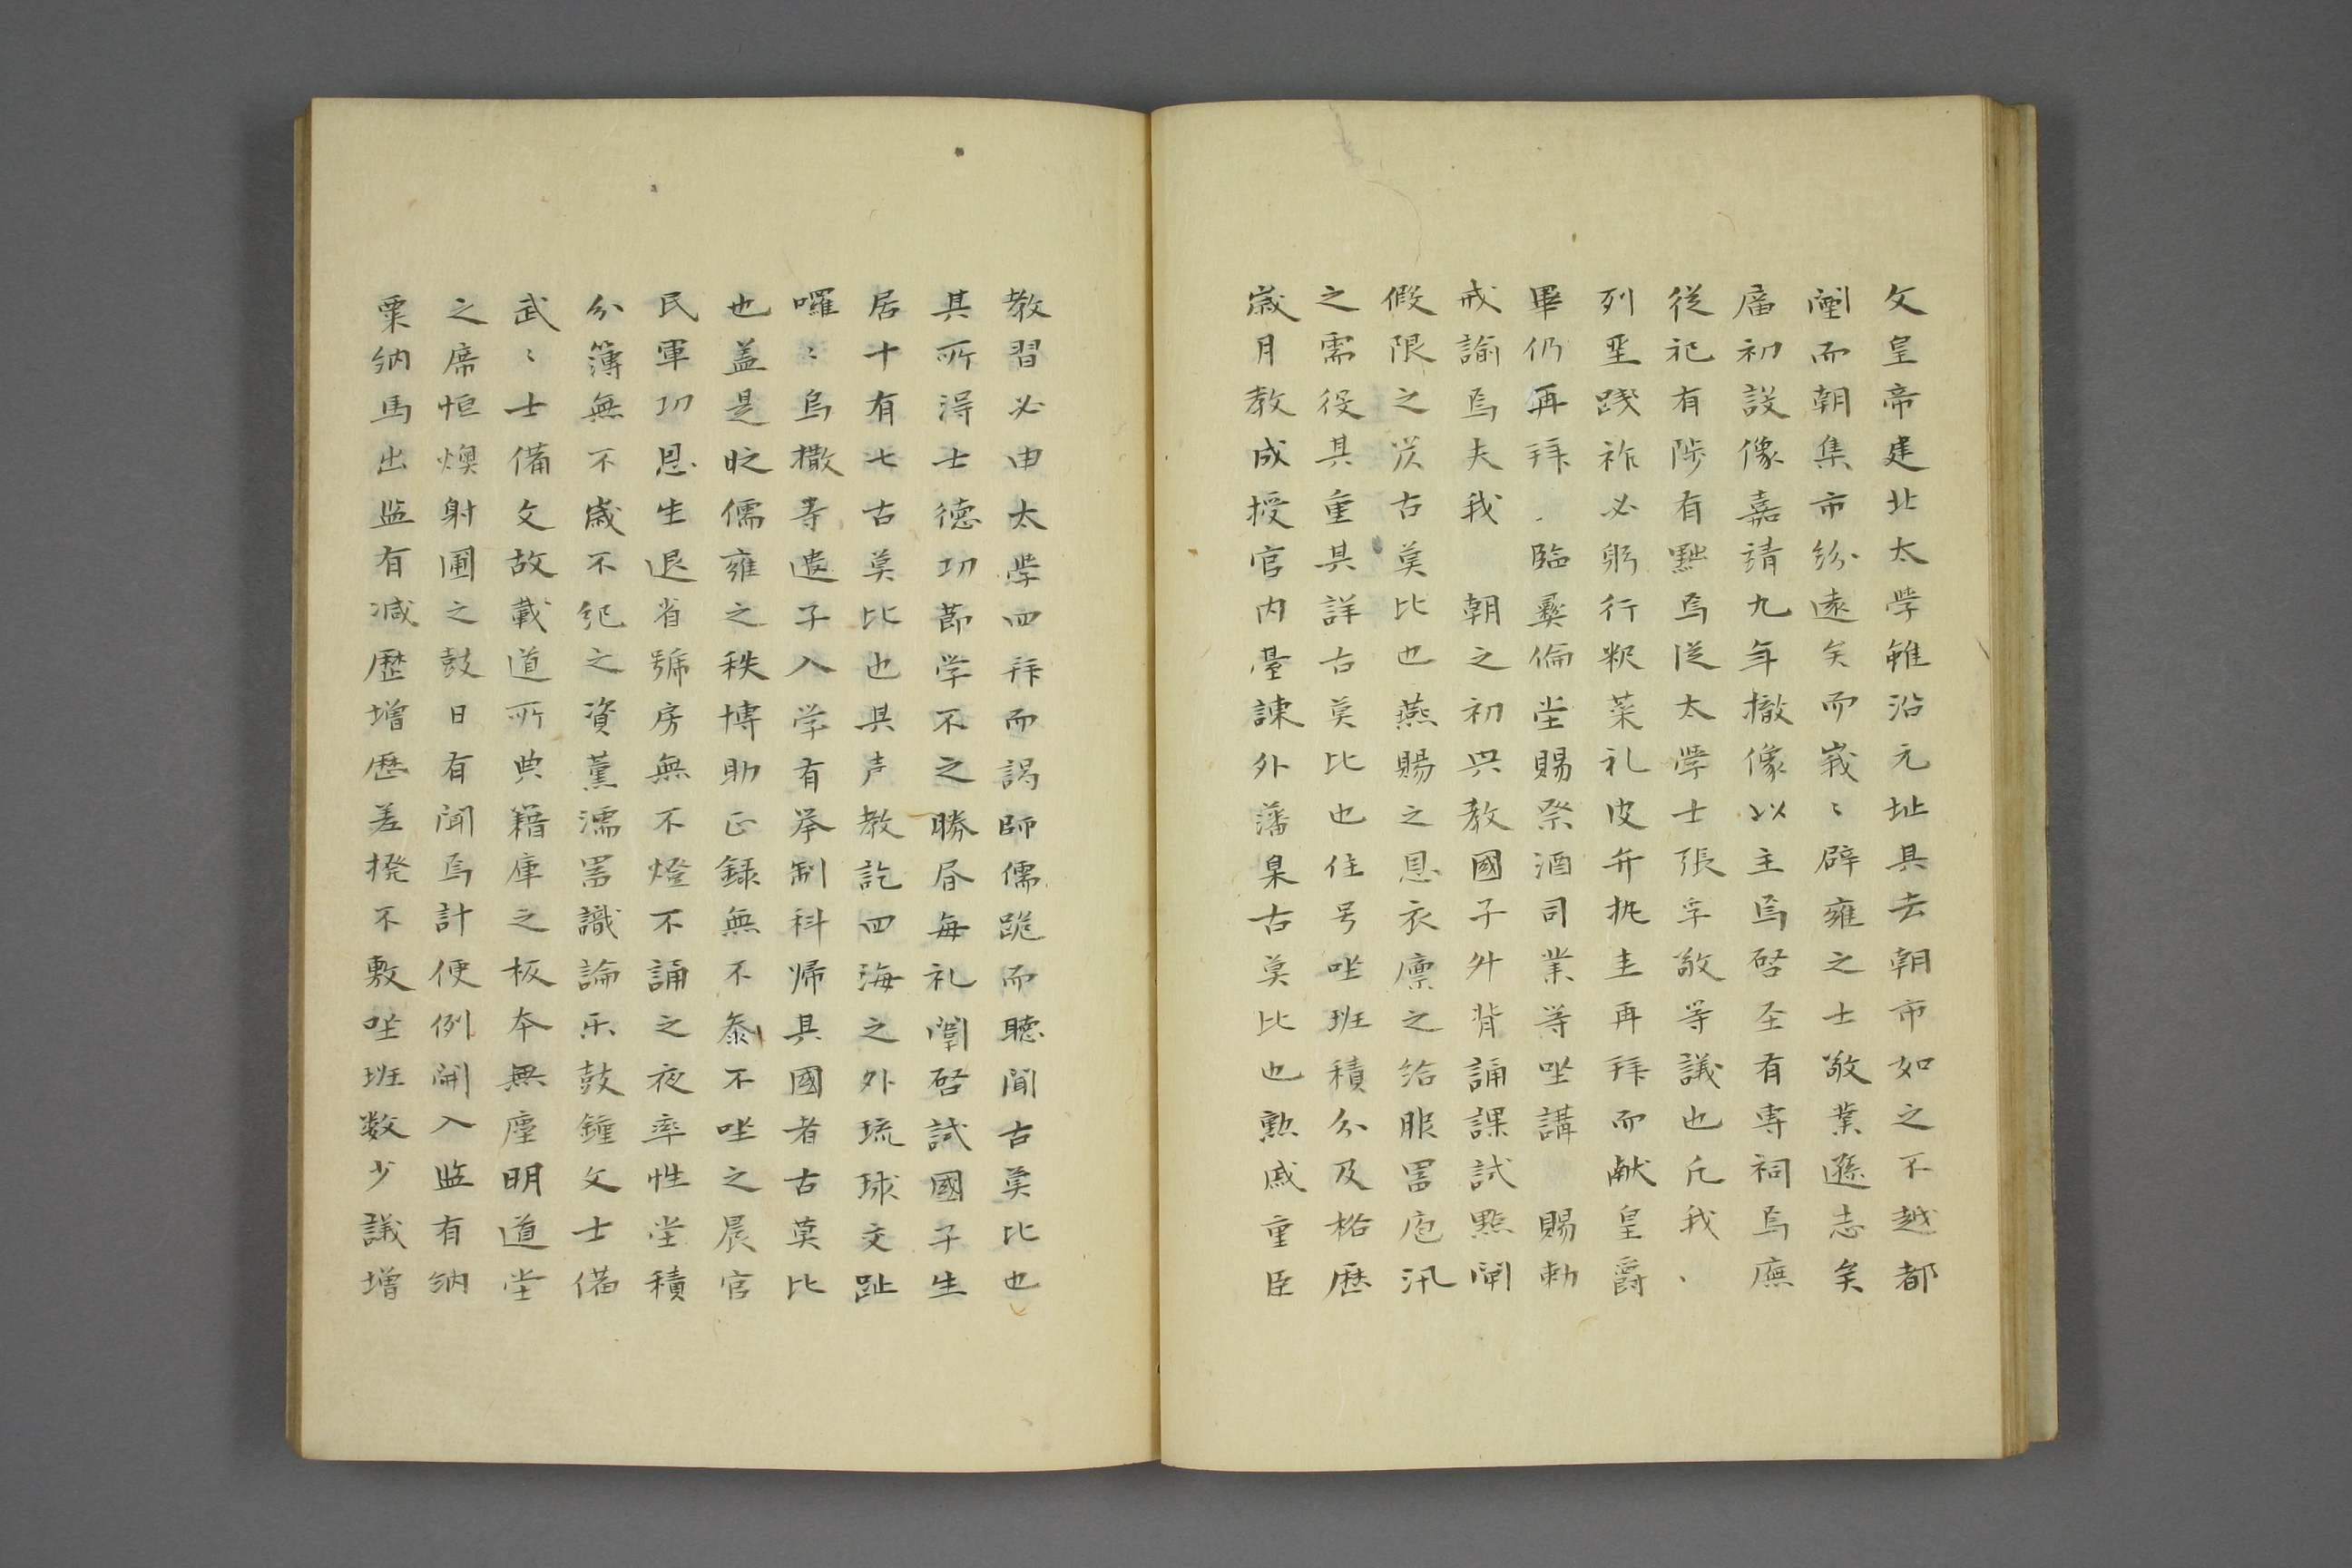 文皇帝建北太学雖沿元址具去朝市如之不越都
闉而朝集市紛遠矣而峩〻辟雍之士敬業遜志矣
庿初設像嘉靖九年撤像以主焉啓圣有専祠焉廡
従祀有陟有黜焉従太学士張孚敬等議也凡我、
列聖践祚必躬行釈菜礼皮弁执圭再拜而献皇爵
畢仍再拜臨彛倫堂賜祭酒司業等坐講賜勅
戒諭焉夫我朝之初興教國子廾背誦課試點閘
假限之次古莫比也燕賜之恩衣廪之给服罟庖汛
之需役具重具詳古莫比也住号坐班積分及格歴
歳月教成授官内䑓諌外藩臬古莫比也勲戚重臣
教習必由太学四拜而謁師儒跪而聴聞古莫比也
其所淂士徳功節学不之勝昬每礼闈啓試國子生
居十有七古莫比也具声教訖四海之外琉球交趾
囉〻烏撒寺遣子入学有挙制科帰具國者古莫比
也盖是旼儒雍之秩博助正録無不泰不坐之晨官
民軍功恩生退省號房無不燈不誦之夜率性堂積
分簿無不歳不纪之資薫濡罟識論乐鼓鐘文士備
武〻士備文故載道所典籍庫之板本無塵明道堂
之席恒燠射圃之鼓日有闻焉計便例開入监有纳
粟纳馬出监有减歴增歴差撥不敷坐班数少議增